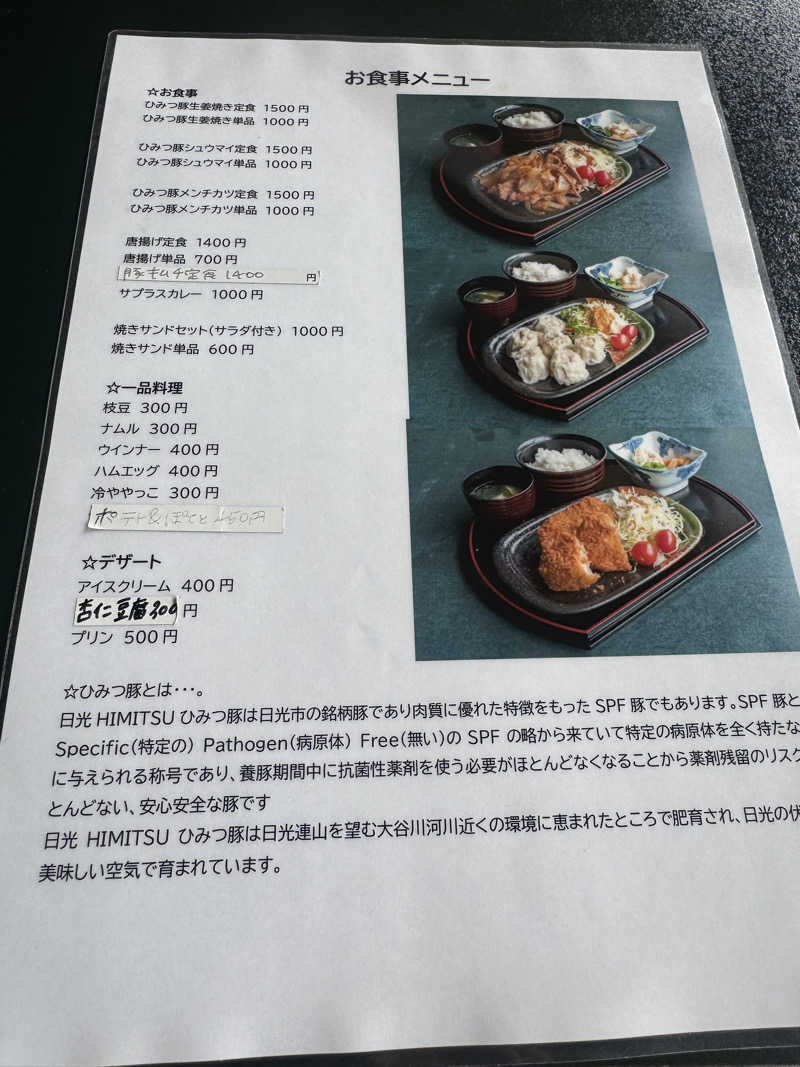 お食事メニュー
☆お食事
ひみつ豚生姜焼き定食 1500円
ひみつ豚生姜焼き単品 1000円
ひみつ豚シュウマイ定食 1500円
ひみつ豚シュウマイ単品 1000円
ひみつ豚メンチカツ定食 1500円
ひみつ豚メンチカツ単品 1000円
唐揚げ定食 1400円
唐揚げ単品 700円
豚キムチ定食 1400 円
サプラスカレー 1000円
焼きサンドセット(サラダ付き) 1000円
焼きサンド単品 600円
☆一品料理
枝豆 300円
ナムル 300円
ウインナー 400円
ハムエッグ 400円
冷ややっこ 300円
ポテト&ぽてと 450円
☆デザート
アイスクリーム 400円
杏仁豆腐300円
プリン 500円
☆ひみつ豚とは・・・。
日光 HIMITSU ひみつ豚は日光市の銘柄豚であり肉質に優れた特徴をもった SPF 豚でもあります。SPF 豚と
Specific(特定の) Pathogen(病原体) Free(無い)の SPF の略から来ていて特定の病原体を全く持たな
に与えられる称号であり、養豚期間中に抗菌性薬剤を使う必要がほとんどなくなることから薬剤残留のリスク
とんどない、安心安全な豚です
日光 HIMITSU ひみつ豚は日光連山を望む大谷川河川近くの環境に恵まれたところで肥育され、日光の伏
美味しい空気で育まれています。